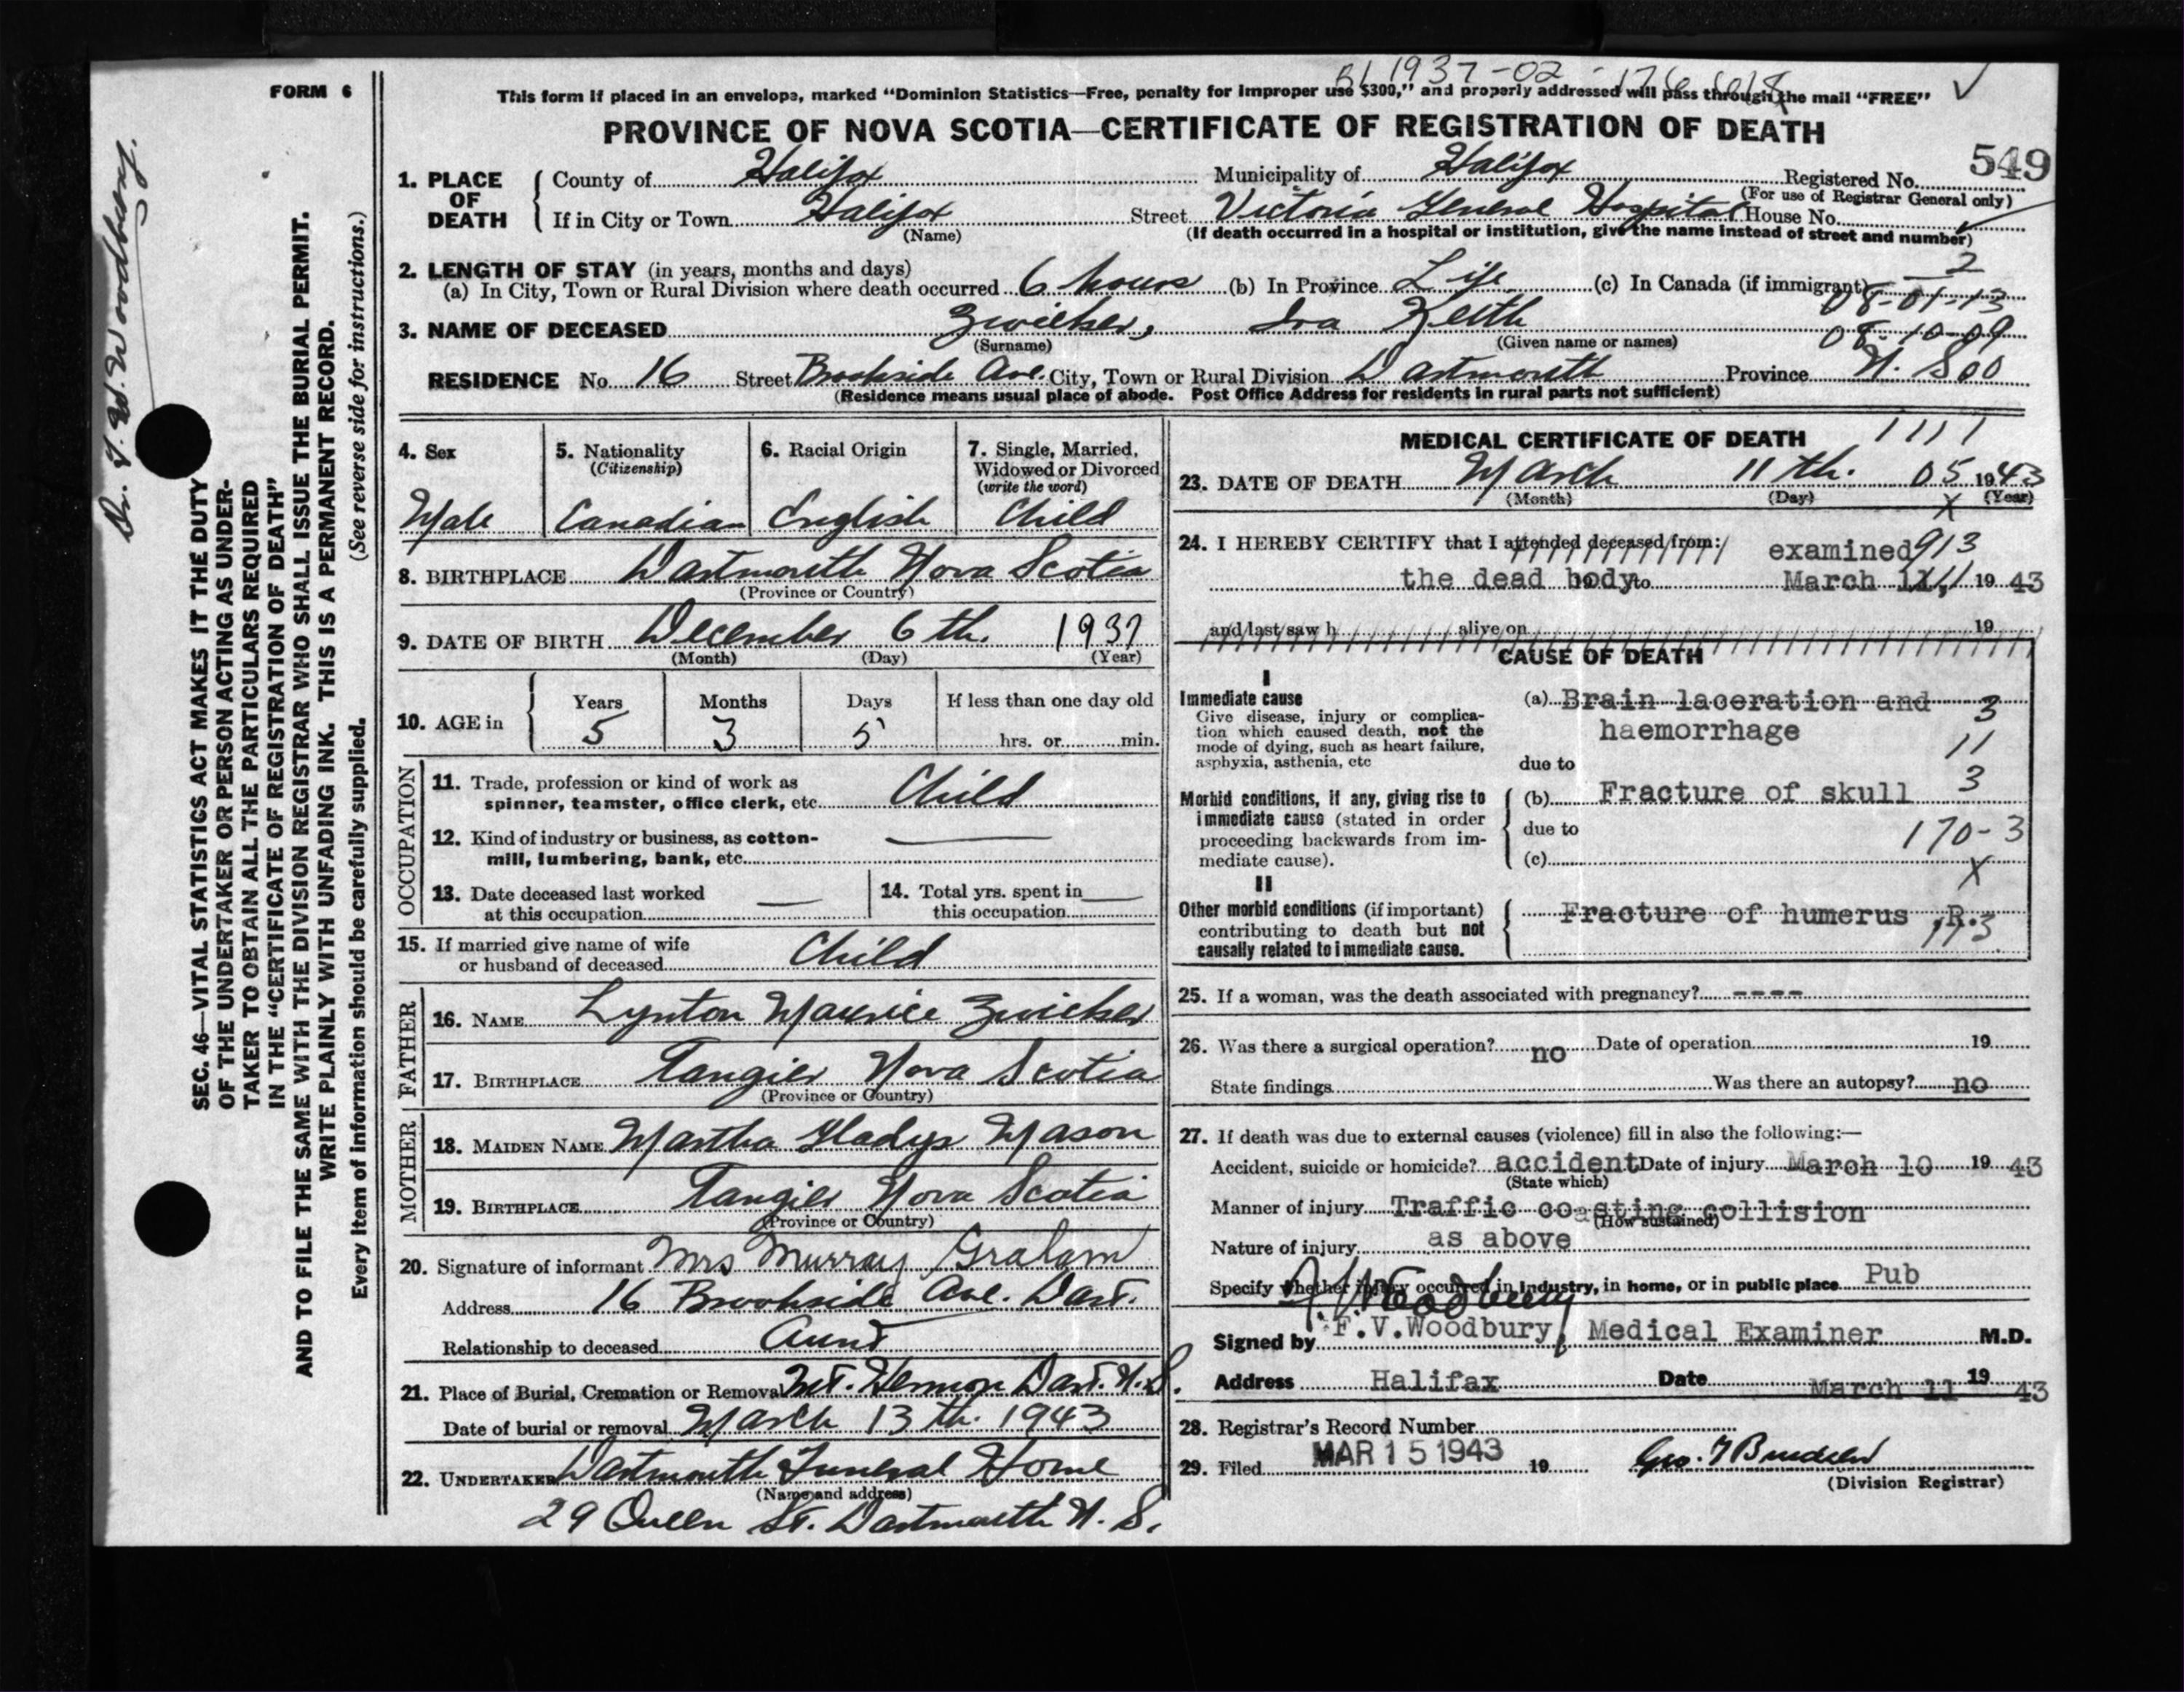 FORM 6
B/ 1937-02-
This form if placed in an envelope, marked "Dominion Statistics—Free, penalty for improper use $300," and properly addressed will pass through the mail "FREE"
PROVINCE OF NOVA SCOTIA—CERTIFICATE OF REGISTRATION OF DEATH
549
1. PLACE OF DEATH
County of Halifax Municipality of Halifax Registered No.
(For use of Registrar General only)
If in City or Town Halifax Street Victoria General Hospital House No.
(Name) (If death occurred in a hospital or institution, give the name instead of street and number)
2. LENGTH OF STAY (in years, months and days) 2
(a) In City, Town or Rural Division where death occurred 6 hours (b) In Province Life (c) In Canada (if immigrant)
08-01-13
3. NAME OF DECEASED Zwicker, Ira Keith
(Surname) (Given name or names) 08-10-09
RESIDENCE No. 16 Street Brookside Ave. City, Town or Rural Division Dartmouth Province N. S 00
(Residence means usual place of abode. Post Office Address for residents in rural parts not sufficient)
4. Sex 5. Nationality (Citizenship) 6. Racial Origin 7. Single, Married, Widowed or Divorced (write the word)
Male Canadian English Child
8. BIRTHPLACE Dartmouth Nova Scotia
(Province or Country)
9. DATE OF BIRTH December 6th. 1937
(Month) (Day) (Year)
10. AGE in Years Months Days If less than one day old
5 3 5 hrs. or min.
OCCUPATION
11. Trade, profession or kind of work as
spinner, teamster, office clerk, etc. Child
12. Kind of industry or business, as cotton-
mill, lumbering, bank, etc. —
13. Date deceased last worked 14. Total yrs. spent in
at this occupation — this occupation —
15. If married give name of wife
or husband of deceased Child
FATHER
16. NAME Lynton Maurice Zwicker
17. BIRTHPLACE Tangier Nova Scotia
(Province or Country)
MOTHER
18. MAIDEN NAME Martha Gladys Mason
19. BIRTHPLACE Tangier Nova Scotia
(Province or Country)
20. Signature of informant Mrs Murray Graham
Address 16 Brookside Ave. Dart.
Relationship to deceased Aunt
21. Place of Burial, Cremation or Removal Mt. Hermon Dart. N.S.
Date of burial or removal March 13th. 1943
22. UNDERTAKER Dartmouth Funeral Home
(Name and address)
29 Queen St. Dartmouth N.S.
MEDICAL CERTIFICATE OF DEATH 1111
23. DATE OF DEATH March 11th. 05 1943
(Month) (Day) (Year)
X
24. I HEREBY CERTIFY that I attended deceased from: examined 913
the dead body to March 11, 1943
and last saw h alive on 19
CAUSE OF DEATH
I
Immediate cause (a) Brain laceration and 3
Give disease, injury or complica-
tion which caused death, not the haemorrhage
mode of dying, such as heart failure, 11
asphyxia, asthenia, etc due to
3
Morbid conditions, if any, giving rise to (b) Fracture of skull
immediate cause (stated in order
proceeding backwards from im- due to 170-3
mediate cause). (c)
X
II
Other morbid conditions (if important) Fracture of humerus ,R.
contributing to death but not
causally related to immediate cause.
25. If a woman, was the death associated with pregnancy? ----
26. Was there a surgical operation? no Date of operation 19
State findings Was there an autopsy? no
27. If death was due to external causes (violence) fill in also the following:—
Accident, suicide or homicide? accident Date of injury March 10 1943
(State which)
Manner of injury Traffic coasting collision
(How sustained)
Nature of injury as above
Specify whether injury occurred in industry, in home, or in public place Pub
F.V.Woodbury
Signed by F.V.Woodbury, Medical Examiner M.D.
Address Halifax Date March 11 1943
28. Registrar's Record Number
29. Filed MAR 15 1943 19
(Division Registrar)
SEC. 46—VITAL STATISTICS ACT MAKES IT THE DUTY
OF THE UNDERTAKER OR PERSON ACTING AS UNDER-
TAKER TO OBTAIN ALL THE PARTICULARS REQUIRED
IN THE "CERTIFICATE OF REGISTRATION OF DEATH"
AND TO FILE THE SAME WITH THE DIVISION REGISTRAR WHO SHALL ISSUE THE BURIAL PERMIT.
WRITE PLAINLY WITH UNFADING INK. THIS IS A PERMANENT RECORD.
Every item of information should be carefully supplied. (See reverse side for instructions.)
Woodbury.